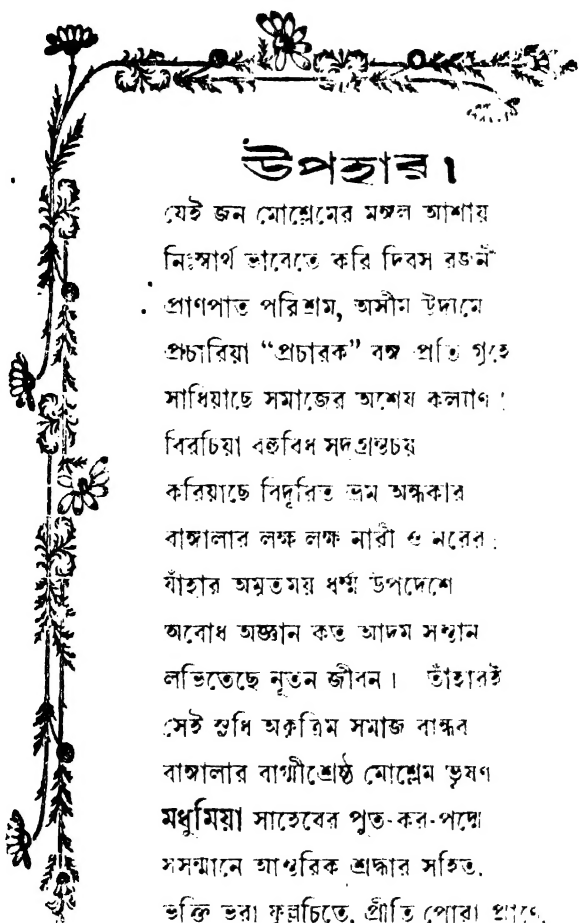 উপহার।
যেই জন মোশ্লেমের মঙ্গল আশায়
নিঃস্বার্থ ভাবেতে করি দিবস রজনী
প্রাণপাত পরিশ্রম, অসীম উদ্যমে
প্রচারিয়া “প্রচারক” বঙ্গ প্রতি গৃহে
সাধিয়াছে সমাজের অশেষ কল্যাণ;
বিরচিয়া বহুবিধ সদগ্রন্থচয়
করিয়াছে বিদূরিত ভ্রম অন্ধকার
বাঙ্গালার লক্ষ লক্ষ নারী ও নরের;
যাঁহার অমৃতময় ধর্ম্ম উপদেশে
অবোধ অজ্ঞান কত আদম সন্তান
লভিতেছে নূতন জীবন। তাঁহারই
সেই সুধি অকৃত্রিম সমাজ বান্ধব
বাঙ্গালার বাগ্মীশ্রেষ্ঠ মোশ্লেম ভূষণ
মধুমিয়া সাহেবের পুত-কর-পদ্মে
সসম্মানে আন্তরিক শ্রদ্ধার সহিত.
ভক্তি ভরা ফুল্লচিতে, প্রীতি পোরা প্রাণে,